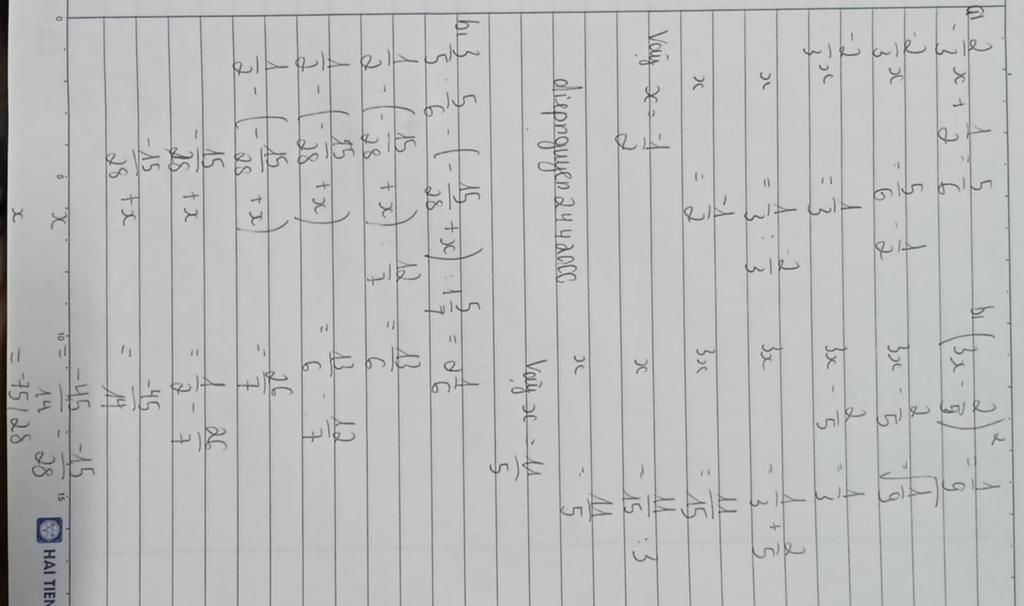 a) -2/3 x + 1/2 = 5/6
-2/3 x = 5/6 - 1/2
-2/3 x = 1/3
x = 1/3 : -2/3
x = -1/2
Vậy x = -1/2
b) (3x - 2/5)² = 1/9
3x - 2/5 = √1/9
3x - 2/5 = 1/3
3x = 1/3 + 2/5
3x = 11/15
x = 11/15 : 3
x = 11/5
Vậy x = 11/5
b) 3/5 . 5/6 - (-15/28 + x) : 1 5/7 = 2 1/6
1/2 - (-15/28 + x) : 12/7 = 13/6
1/2 - (-15/28 + x) = 13/6 . 12/7
1/2 - (-15/28 + x) = 26/7
-15/28 + x = 1/2 - 26/7
-15/28 + x = -45/14
x = -45/14 - -15/28
x = -75/28
0 5 10 15
HAI TIEN